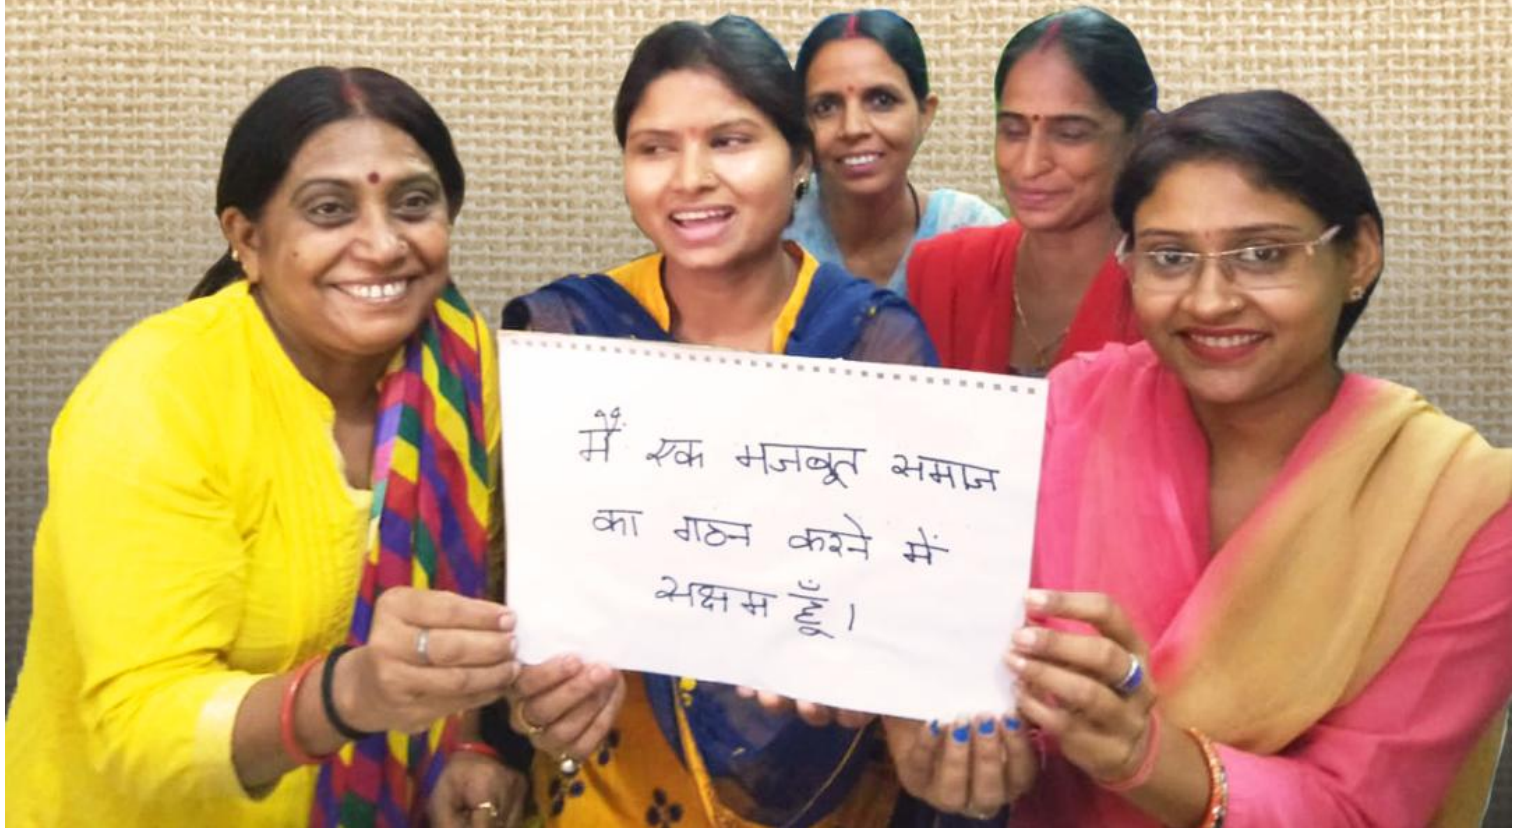 मैं एक मजबूत समाज
का गठन करने में
सक्षम हूँ।